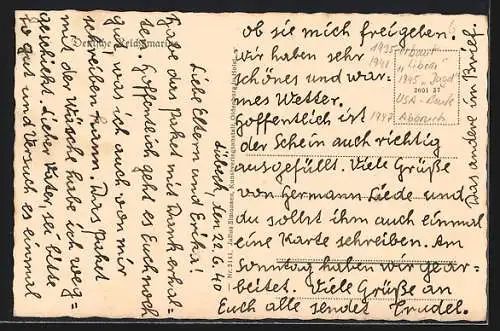 Deutsche Reichsmarine
Lübeck, den 22.6.40
Liebe Eltern und Erika!
Habe das Paket mit Dank erhal-
ten. Hoffentlich geht es Euch noch
gut, was ich auch von mir
schreiben kann. Das Paket
mit der Wäsche habe ich weg-
geschickt. Lieber Vater, sei bitte
so gut und versuch es einmal
ob sie mich freigeben!
Wir haben sehr
schönes und war-
mes Wetter.
Hoffentlich ist
der Schein auch richtig
ausgefüllt. Viele Grüße
von Germann Liede und
du sollst ihm auch einmal
eine Karte schreiben. Am
Sonntag haben wir gear-
beitet. Viele Grüße an
Euch alle sendet Trudel.
Das andere im Brief.
Julius Simonsen, Kunstverlagsanstalt, Oldenburg in Holst.
1935 erbaut
1941
1945 "Jagd"
2601 37
USA-Beute
1947 Abbruch